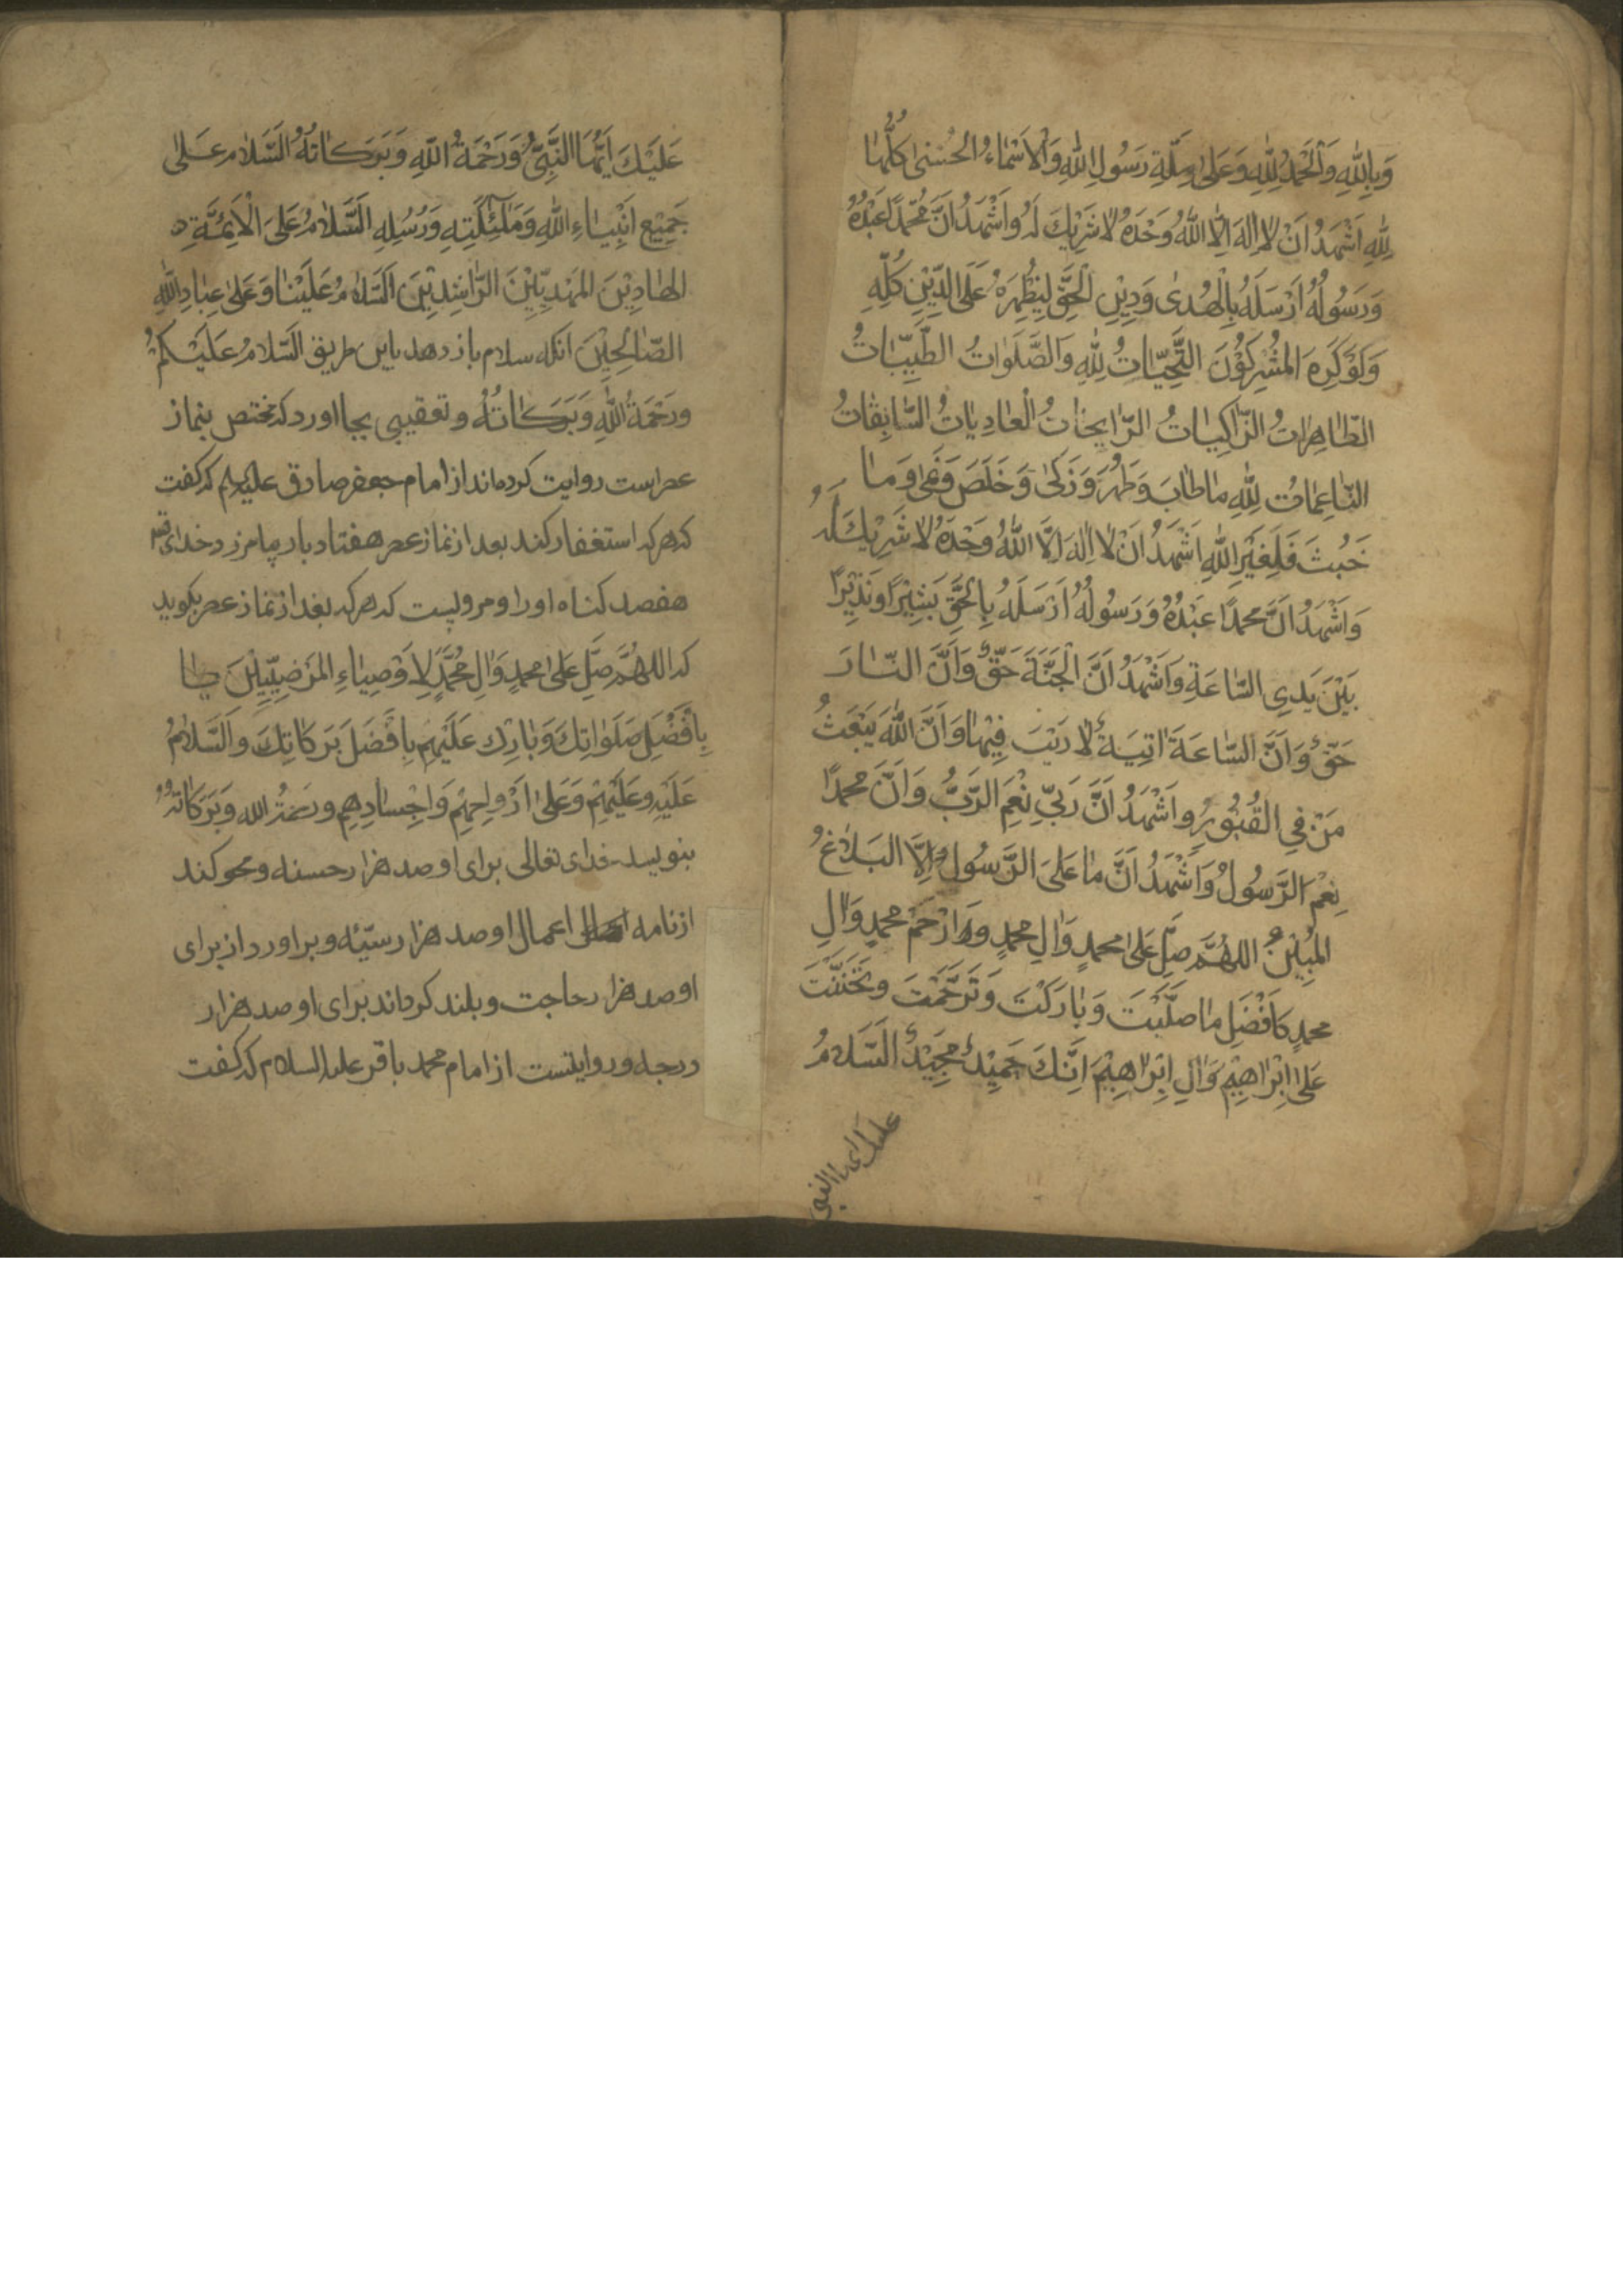 وَبِاللّٰهِ وَالْحَمْدُ لِلّٰهِ وَعَلٰى مِلَّةِ رَسُولِ اللّٰهِ وَالْاَسْمَاءُ الْحُسْنٰى كُلُّهَا
لِلّٰهِ اَشْهَدُ اَنْ لَا اِلٰهَ اِلَّا اللّٰهُ وَحْدَهُ لَا شَرِيْكَ لَهُ وَاَشْهَدُ اَنَّ مُحَمَّدًا عَبْدُهُ
وَرَسُولُهُ اَرْسَلَهُ بِالْهُدٰى وَدِيْنِ الْحَقِّ لِيُظْهِرَهُ عَلَى الدِّيْنِ كُلِّهِ
وَلَوْ كَرِهَ الْمُشْرِكُوْنَ التَّحِيَّاتُ لِلّٰهِ وَالصَّلَوَاتُ الطَّيِّبَاتُ
الطَّاهِرَاتُ الزَّاكِيَاتُ الرَّايِحَاتُ الْغَادِيَاتُ السَّابِقَاتُ
النَّاعِمَاتُ لِلّٰهِ مَا طَابَ وَطَهُرَ وَزَكٰى وَخَلَصَ وَنَمٰى وَمَا
خَبُثَ فَلِغَيْرِ اللّٰهِ اَشْهَدُ اَنْ لَا اِلٰهَ اِلَّا اللّٰهُ وَحْدَهُ لَا شَرِيْكَ لَهُ
وَاَشْهَدُ اَنَّ مُحَمَّدًا عَبْدُهُ وَرَسُولُهُ اَرْسَلَهُ بِالْحَقِّ بَشِيْرًا وَنَذِيْرًا
بَيْنَ يَدَيِ السَّاعَةِ وَاَشْهَدُ اَنَّ الْجَنَّةَ حَقٌّ وَاَنَّ النَّارَ
حَقٌّ وَاَنَّ السَّاعَةَ اٰتِيَةٌ لَا رَيْبَ فِيْهَا وَاَنَّ اللّٰهَ يَبْعَثُ
مَنْ فِي الْقُبُوْرِ وَاَشْهَدُ اَنَّ رَبِّيْ نِعْمَ الرَّبُّ وَاَنَّ مُحَمَّدًا
نِعْمَ الرَّسُولُ وَاَشْهَدُ اَنَّ مَا عَلَى الرَّسُولِ اِلَّا الْبَلَاغُ
الْمُبِيْنُ اللّٰهُمَّ صَلِّ عَلٰى مُحَمَّدٍ وَاٰلِ مُحَمَّدٍ وَارْحَمْ مُحَمَّدٍ وَاٰلِ
مُحَمَّدٍ كَاَفْضَلِ مَا صَلَّيْتَ وَبَارَكْتَ وَتَرَحَّمْتَ وَتَحَنَّنْتَ
عَلٰى اِبْرَاهِيْمَ وَاٰلِ اِبْرَاهِيْمَ اِنَّكَ حَمِيْدٌ مَجِيْدٌ السَّلَامُ
عليك ايها النبى
عَلَيْكَ اَيُّهَا النَّبِيُّ وَرَحْمَةُ اللّٰهِ وَبَرَكَاتُهُ السَّلَامُ عَلٰى
جَمِيْعِ اَنْبِيَاءِ اللّٰهِ وَمَلٰٓئِكَتِهِ وَرُسُلِهِ السَّلَامُ عَلَى الْاَئِمَّةِ
الْهَادِيْنَ الْمَهْدِيِّيْنَ الرَّاشِدِيْنَ السَّلَامُ عَلَيْنَا وَعَلٰى عِبَادِ اللّٰهِ
الصَّالِحِيْنَ انكه سلام باز دهد باين طريق السَّلَامُ عَلَيْكُمْ
وَرَحْمَةُ اللّٰهِ وَبَرَكَاتُهُ و تعقيبى بجا اورد كه مختص بنماز
عصر است روايت كرده‌اند از امام جعفر صادق عليه‌لم كه كفت
كه هر كه استغفار كند بعد از نماز عصر هفتاد بار بيامرزد خداى
هفصد كناه او را و مرويست كه هر كه بعد از نماز عصر بكويد
كه اللهم صَلِّ عَلٰى مُحَمَّدٍ وَاٰلِ مُحَمَّدٍ الْاَوْصِيَاءِ الْمَرْضِيِّيْنَ
بِاَفْضَلِ صَلَوَاتِكَ وَبَارِكْ عَلَيْهِمْ بِاَفْضَلِ بَرَكَاتِكَ وَالسَّلَامُ
عَلَيْهِ وَعَلَيْهِمْ وَعَلٰى اَرْوَاحِهِمْ وَاَجْسَادِهِمْ ورحمةُ الله وَبَرَكَاتُهُ
بنويسد خداى تعالى براى او صد هزار حسنه و محو كند
از نامه اعمال او صد هزار سيّئه و بر اورد از براى
او صد هزار حاجت و بلند كرداند براى او صد هزار
درجه و روايتست از امام محمد باقر عليه السلام كه كفت